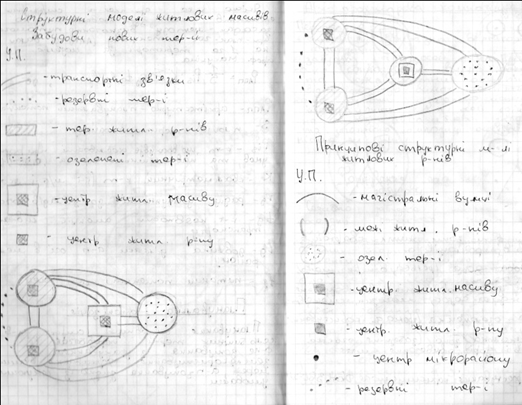 Структурні моделі житлових масивів
Забудови нових тер-ій
У.П.
- транспортні зв'язки
- резервні тер-ї
- тер. житл. р-нів
- озеленені тер-ї
- центр житл. масиву
- центр житл р-ну
Принципові структурні м-лі
житлових р-нів
У.П.
- магістральні вулиці
- межі житл. р-нів
- озел. тер-ї
- центр. житл. масиву
- центр. житл. р-ну
- центр мікрорайону
- резервні тер-ї